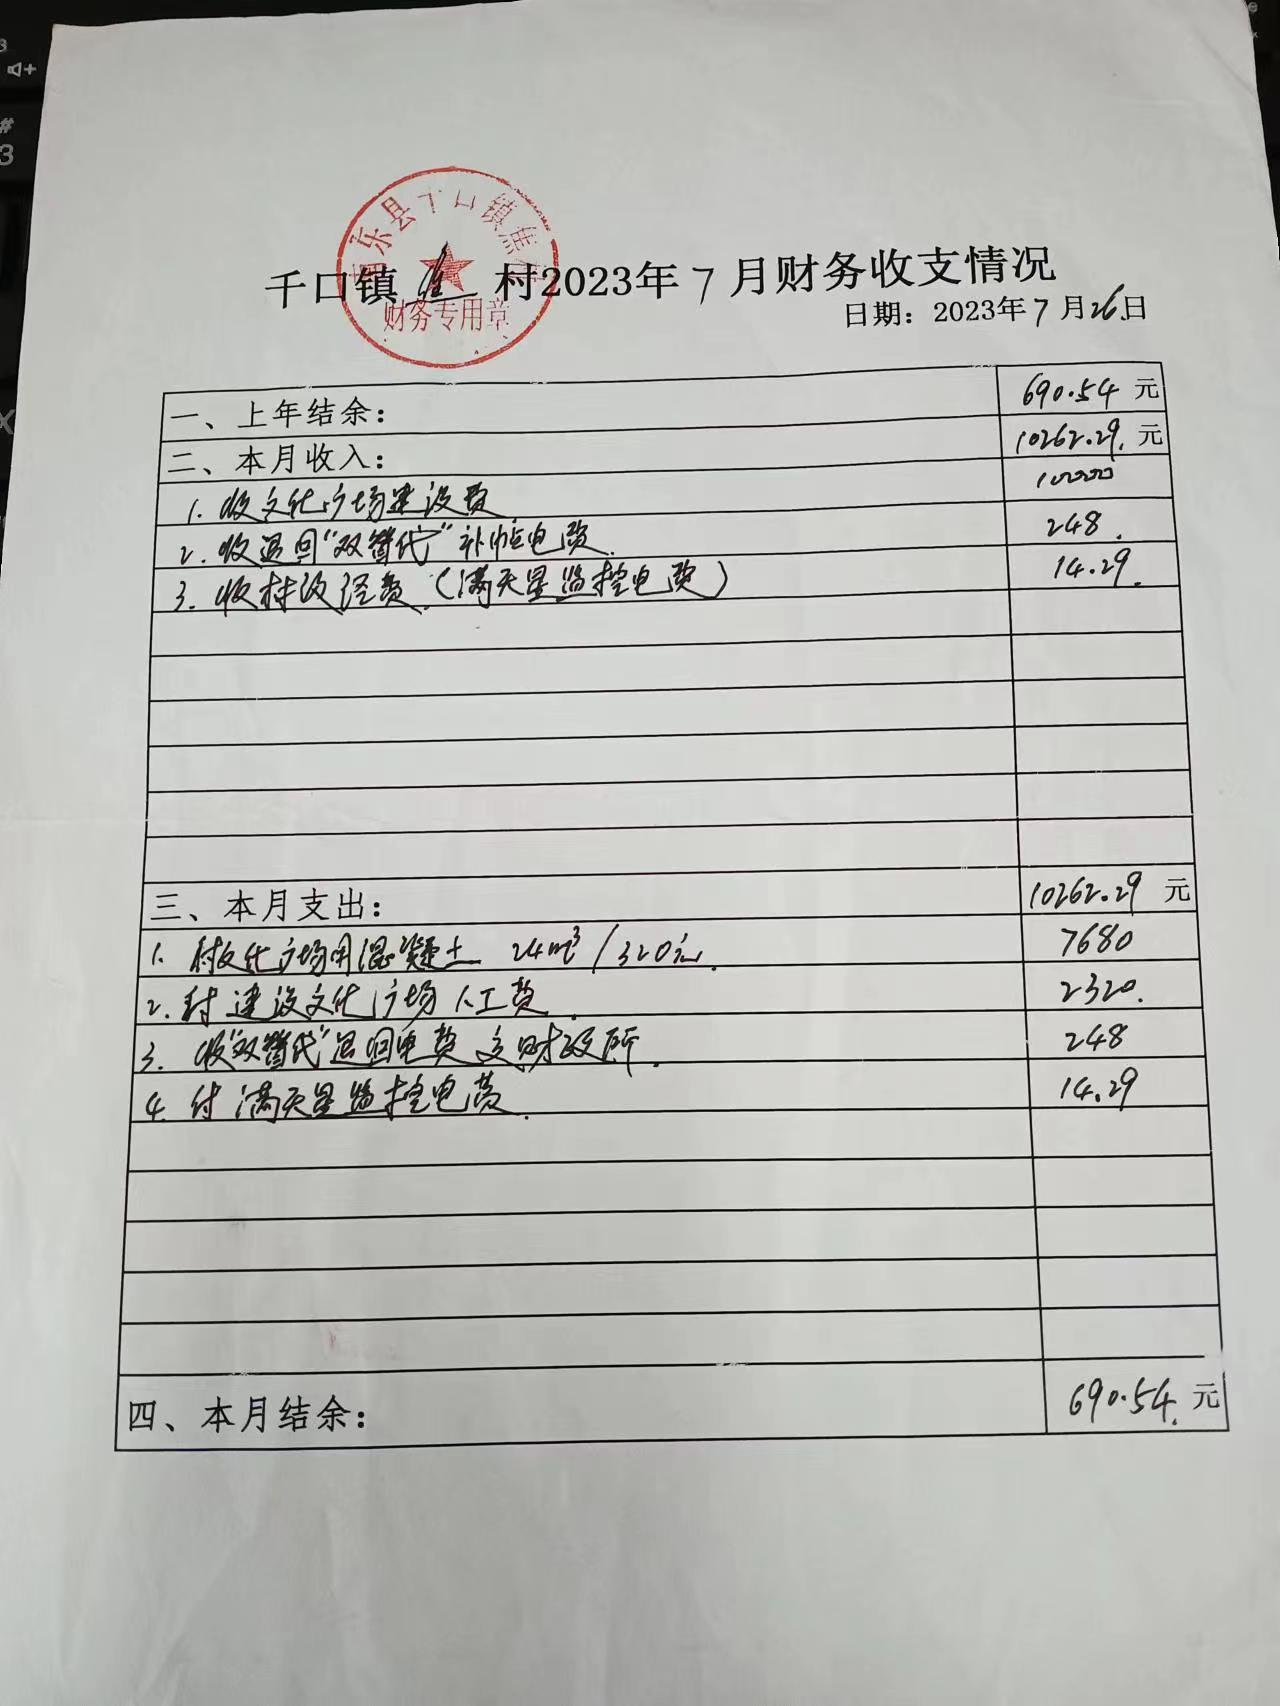 南乐县千口镇焦村
财务专用章
千口镇 焦 村2023年 7 月财务收支情况
日期：2023年 7 月 26 日
一、上年结余： 690.54 元
二、本月收入： 10262.29. 元
1. 收文化广场建设费 10000
2. 收退回“双替代”补帖电费. 248.
3. 收村级经费.（满天星监控电费） 14.29.
三、本月支出： 10262.29 元
1. 付文化广场用混凝土 24m³/320元. 7680
2. 付建设文化广场人工费. 2320.
3. 收“双替代”退回电费交财政所. 248
4. 付满天星监控电费. 14.29
四、本月结余： 690.54. 元